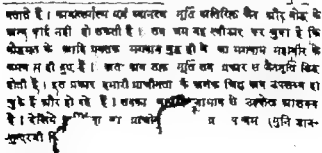 बताते हैं । कायोत्सर्गस्थ एवं ध्यानस्थ मूर्ति अतिरिक्त जैन और बौद्ध के
अन्य पाई नहीं हो सकती है । तब यह स्वीकार कर चुका है कि
बौद्धमत के आदि प्रवर्तक भगवान बुद्ध ही वे का भगवान महावीर के
समय में ही हुए हैं । अतः अब तक मूर्ति सब प्रकार से जैनमूर्ति सिद्ध
होती है । इस प्रकार हमारी प्राचीनता के अनेक चिह्न अब उपलब्ध हो
चुके हैं और हो रहे हैं । सबका से उल्लेख अशक्य
है । देखिये का प्राचीन प्र प्रथम (मुनि ज्ञान-
सुन्दरजी